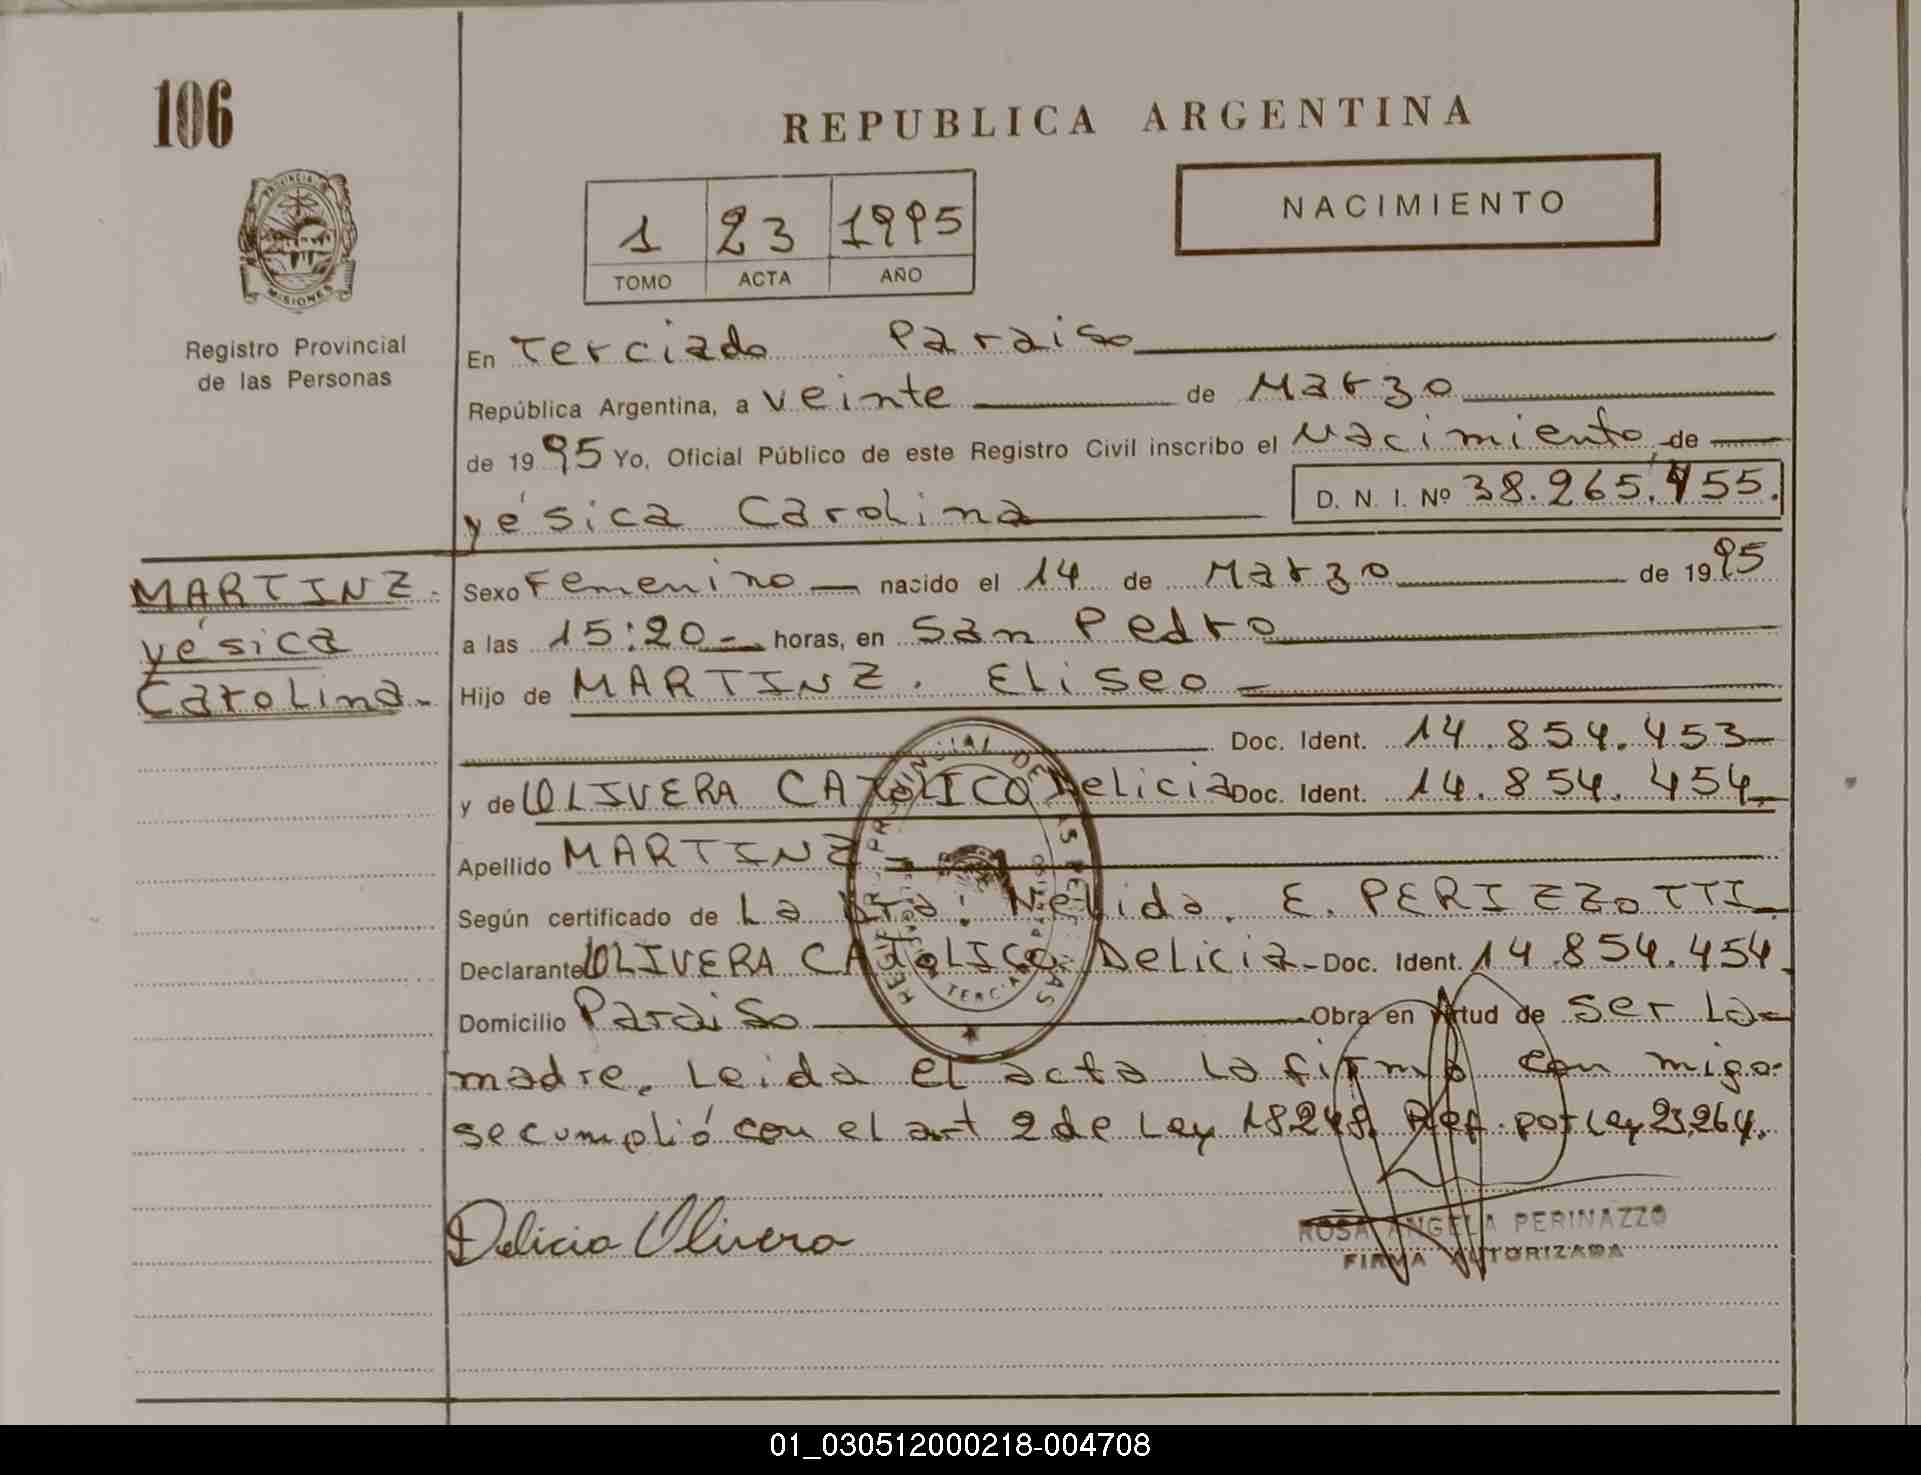 106
REPUBLICA ARGENTINA
NACIMIENTO
1 23 1995
TOMO ACTA AÑO
PROVINCIA DE MISIONES
Registro Provincial
de las Personas
En Terciado Paraiso
República Argentina, a veinte de Marzo
de 1995 Yo, Oficial Público de este Registro Civil inscribo el Nacimiento de
yésica Carolina D. N. I. Nº 38.265.755.
MARTINZ.
yésica
Carolina.-
Sexo Femenino nacido el 14 de Marzo de 1995
a las 15:20- horas, en San Pedro
Hijo de MARTINZ. Eliseo
Doc. Ident. 14.854.453
y de OLIVERA CATOLICO Delicia Doc. Ident. 14.854.454.
Apellido MARTINZ
Según certificado de La Dra. Nelida. E. PERIZZOTTI
Declarante OLIVERA CATOLICO Delicia- Doc. Ident. 14.854.454
Domicilio Paraiso Obra en virtud de ser la
madre. Leida el acta la firma con migo.
se cumplió con el art 2 de Ley 18248. Ref. por Ley 23.264.
Delicia Olivera
ROSA ANGELA PERINAZZO
FIRMA AUTORIZADA
01_030512000218-004708